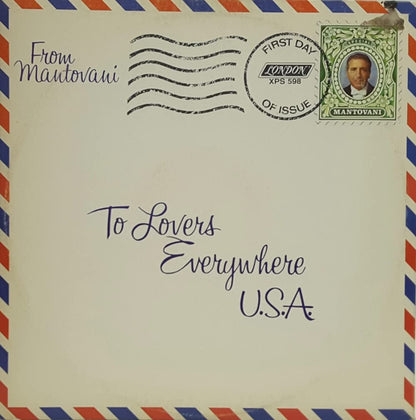 From
Mantovani
FIRST DAY
LONDON
XPS 598
OF ISSUE
MANTOVANI
To Lovers
Everywhere
U.S.A.